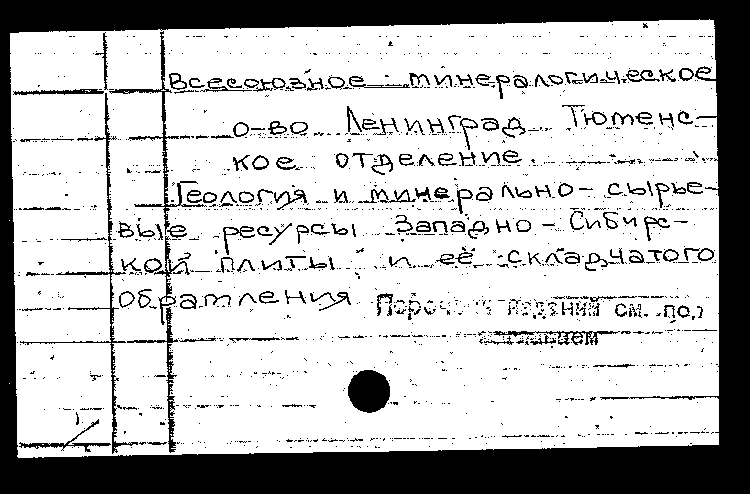 Всесоюзное минералогическое
о-во Ленинград Тюменс-
кое отделение.
Геология и минерально-сырье-
вые ресурсы Западно-Сибирс-
кой плиты и её складчатого
обрамления
изданий см. под